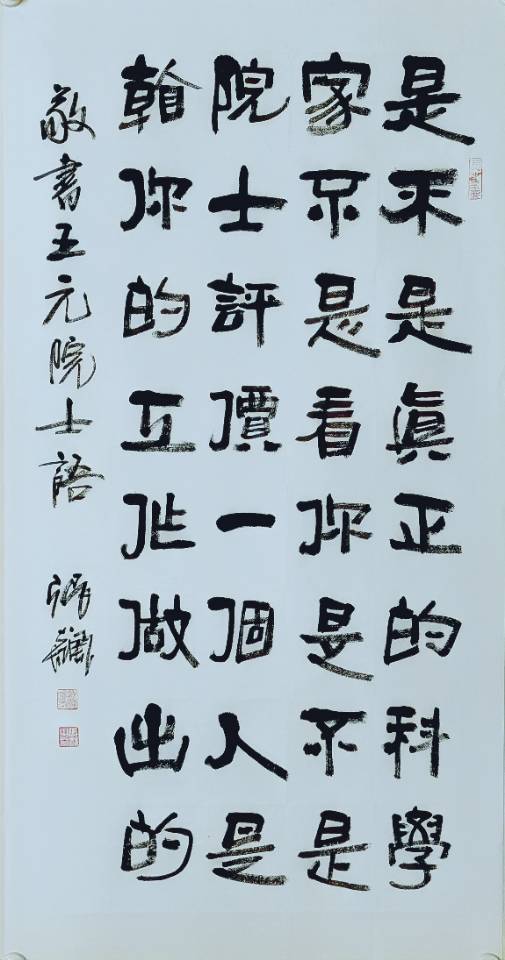 是不是眞正的科學
家不是看你是不是
院士評價一個人是
你的工作做出的
敬書王元院士語
張